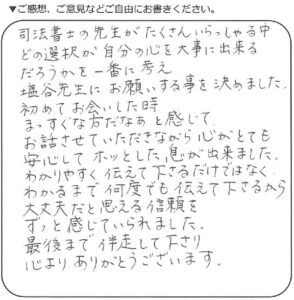 ▼ご感想、ご意見などご自由にお書きください。
司法書士の先生がたくさんいらっしゃる中
どの選択が自分の心を大事に出来る
だろうかを一番に考え
塩谷先生にお願いする事を決めました。
初めてお会いした時
まっすぐな方だなぁと感じて
お話させていただきながら心がとても
安心してホッとした息が出来ました。
わかりやすく伝えて下さるだけではなく
わかるまで何度でも伝えて下さるから
大丈夫だと思える信頼を
ずっと感じていられました。
最後まで伴走して下さり
心よりありがとうございます。